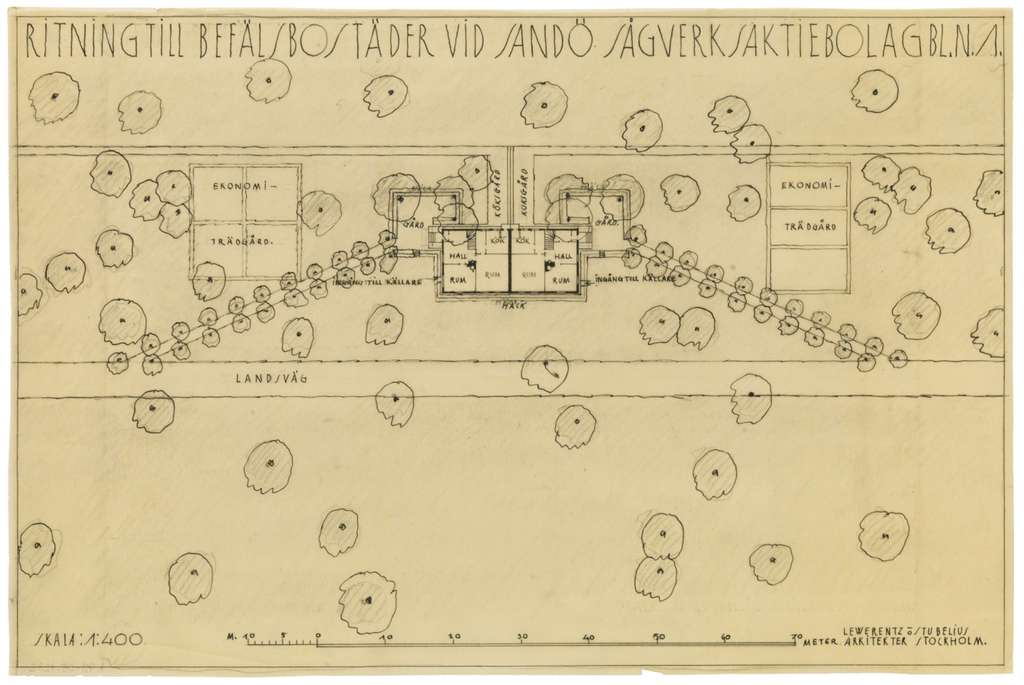 RITNING TILL BEFÄLSBOSTÄDER VID SANDÖ SÅGVERKSAKTIEBOLAG BL.N.1.
EKONOMI-
TRÄDGÅRD.
KÖKSGÅRD
KÖKSGÅRD
EKONOMI-
TRÄDGÅRD
GÅRD
GÅRD.
KÖK
KÖK
HALL
HALL
RUM
RUM
RUM
RUM
INGÅNG TILL KÄLLARE
INGÅNG TILL KÄLLARE
HÄCK
LANDSVÄG
SKALA:1:400
M. 10 5 0 10 20 30 40 50 60 70 METER
LEWERENTZ o STUBELIUS
ARKITEKTER STOCKHOLM.